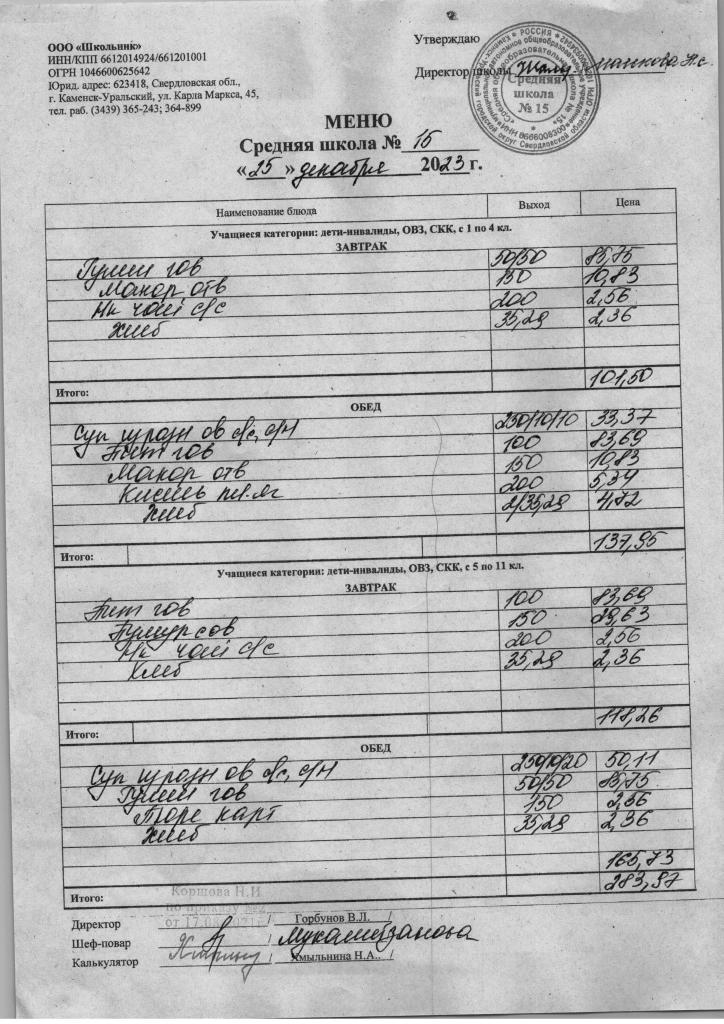 ООО «Школьник»
ИНН/КПП 6612014924/661201001
ОГРН 1046600625642
Юрид. адрес: 623418, Свердловская обл.,
г. Каменск-Уральский, ул. Карла Маркса, 45,
тел. раб. (3439) 365-243; 364-899
Утверждаю
Директор школы
Средняя школа № 15
МЕНЮ
Средняя школа № 15
«25» декабря 2023 г.
Наименование блюда Выход Цена
Учащиеся категории: дети-инвалиды, ОВЗ, СКК, с 1 по 4 кл.
ЗАВТРАК
Гуляш гов 50/50 85,75
Макар отв 150 10,83
Нк чай с/с 200 2,56
Хлеб 35,29 2,36
101,50
Итого:
ОБЕД
Суп 250/10/10 33,37
гов 100 83,69
Макар отв 150 10,83
Кисель 200 5,34
Хлеб 2/35,29 4,72
137,95
Итого:
Учащиеся категории: дети-инвалиды, ОВЗ, СКК, с 5 по 11 кл.
ЗАВТРАК
гов 100 83,69
150 29,63
Нк чай с/с 200 2,56
Хлеб 35,29 2,36
118,26
Итого:
ОБЕД
Суп 250/10/20 50,11
Гуляш гов 50/50 85,75
Пюре карт 150
Хлеб 35,29 2,36
165,73
283,97
Итого:
Коршова Н.И
по приказу №2
Директор / Горбунов В.Л. /
Шеф-повар / /
Калькулятор / Хмыльнина Н.А.. /